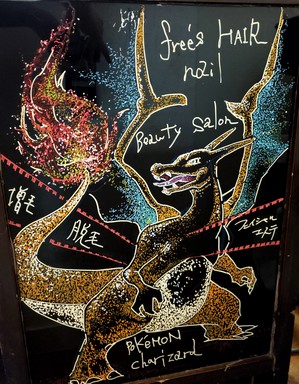 free's HAIR
nail
Beauty Salon
増毛
脱毛
フェイシャル
エステ
POKéMON
charizard